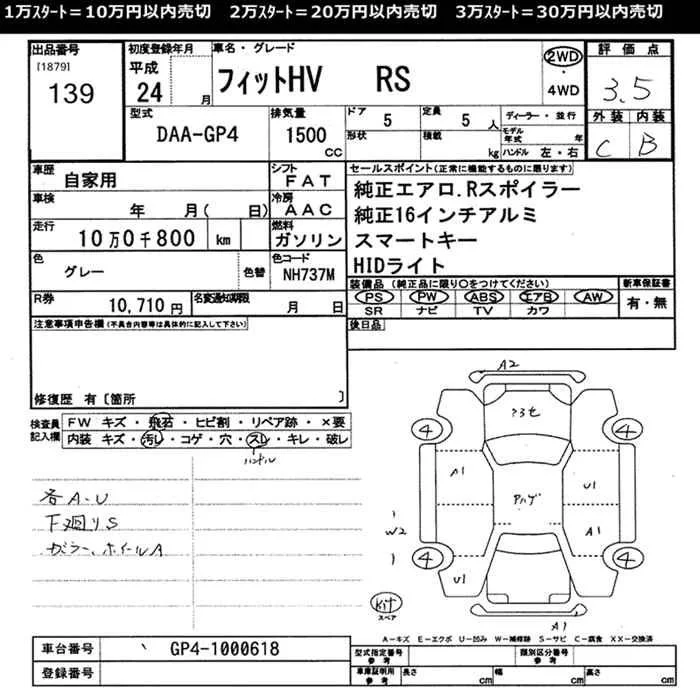 1万ｽﾀｰﾄ＝10万円以内売切　2万ｽﾀｰﾄ＝20万円以内売切　3万ｽﾀｰﾄ＝30万円以内売切
出品番号
[1879]
139
初度登録年月
平成
24 月
車名・グレード
フィットHV RS
2WD
・
4WD
評価点
3.5
型式
DAA-GP4
排気量
1500
CC
ドア
5
定員
5 人
形状
積載
kg
ディーラー・並行
モデル年式 年
ハンドル 左・右
外装 内装
C B
車歴
自家用
シフト
FAT
車検
年 月( 日)
冷房
AAC
走行
10万0千800 km
燃料
ガソリン
色
グレー
色替
色コード
NH737M
R券
10,710 円
名変通知期限
月 日
セールスポイント(正常に機能するものに限ります)
純正エアロ.Rスポイラー
純正16インチアルミ
スマートキー
HIDライト
装備品 (純正品に限り○をつけてください)
PS PW ABS エアB AW
SR ナビ TV カワ
新車保証書
有・無
後日品
注意事項申告欄(不具合内容等は具体的に記入して下さい)
修復歴 有〔箇所 〕
検査員
記入欄
FW キズ・飛石・ヒビ割・リペア跡・×要
内装 キズ・汚レ・コゲ・穴・スレ・キレ・破レ
ハンドル
各A.U
下廻りS
ガラー、ホイールA
A2
4
4
A1
U1
アハゲ
W2
A1
4
4
U1
Kit
スペア
A1
A－キズ E－エクボ U－凹み W－補修跡 S－サビ C－腐食 XX－交換済
車台番号
GP4-1000618
登録番号
型式指定番号
参考
類別区分番号
参考
車庫証明用
参考
長さ cm
幅 cm
高さ cm